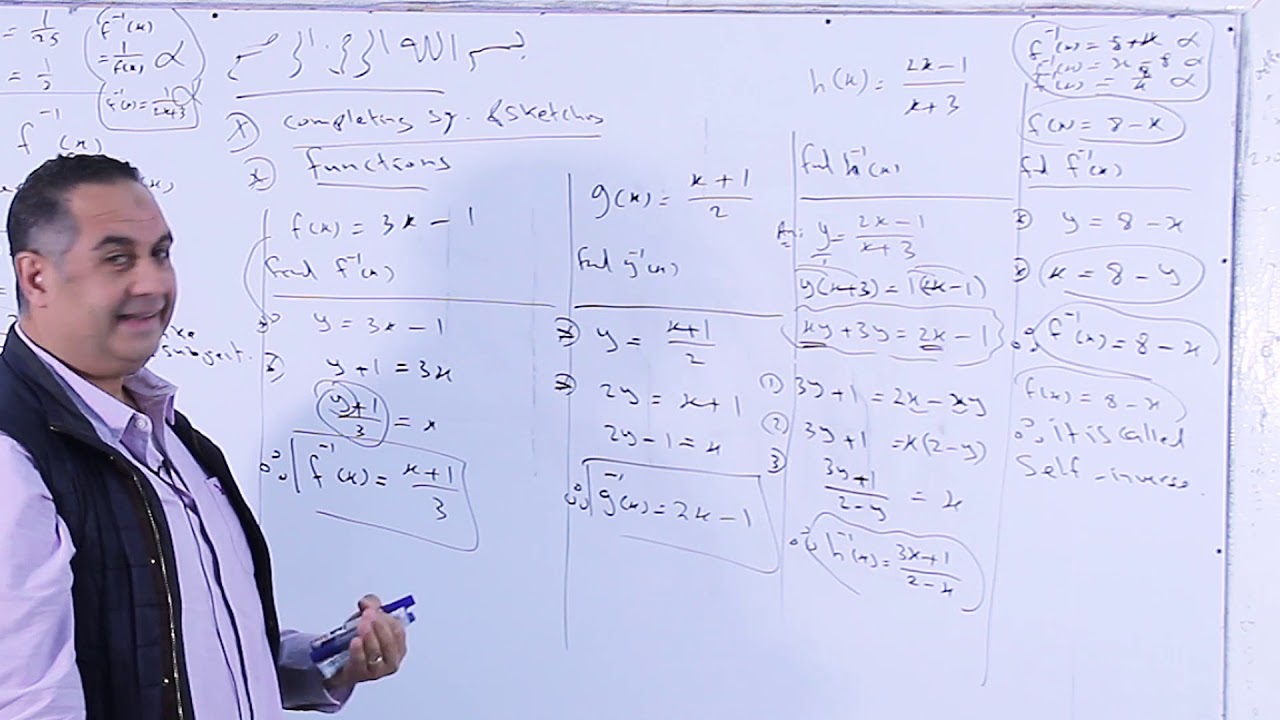 = 1/25
= 1/2
f⁻¹(x)
= 1/f(x) α
f⁻¹(x) = 1/(2x+3) α
f⁻¹(x)
subject.
completing sq. & sketches
functions
f(x) = 3x - 1
find f⁻¹(x)
y = 3x - 1
y + 1 = 3x
(y+1)/3 = x
∴ f⁻¹(x) = (x+1)/3
g(x) = (x+1)/2
find g⁻¹(x)
y = (x+1)/2
2y = x + 1
2y - 1 = x
∴ g⁻¹(x) = 2x - 1
h(x) = (2x-1)/(x+3)
find h⁻¹(x)
Ans: y = (2x-1)/(x+3)
y(x+3) = 1(2x-1)
xy + 3y = 2x - 1
① 3y + 1 = 2x - xy
② 3y + 1 = x(2-y)
③ (3y+1)/(2-y) = x
∴ h⁻¹(x) = (3x+1)/(2-x)
f⁻¹(x) = 8 + x α
f⁻¹(x) = x - 8 α
f⁻¹(x) = 8/x α
f(x) = 8 - x
find f⁻¹(x)
y = 8 - x
x = 8 - y
∴ f⁻¹(x) = 8 - x
f(x) = 8 - x
∴ it is called
Self-inverse.